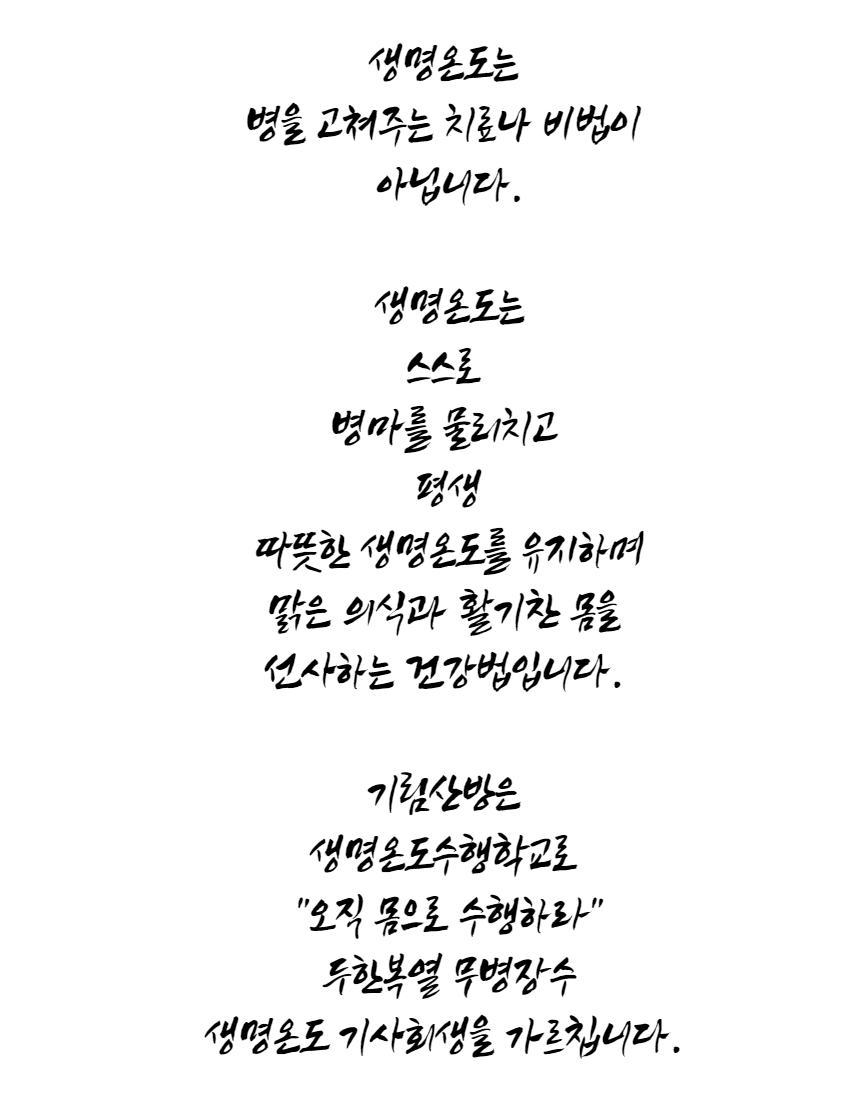 생명온도는
병을 고쳐주는 치료나 비법이
아닙니다.
생명온도는
스스로
병마를 물리치고
평생
따뜻한 생명온도를 유지하며
맑은 의식과 활기찬 몸을
선사하는 건강법입니다.
기림산방은
생명온도수행학교로
"오직 몸으로 수행하라"
두한복열 무병장수
생명온도 기사회생을 가르칩니다.